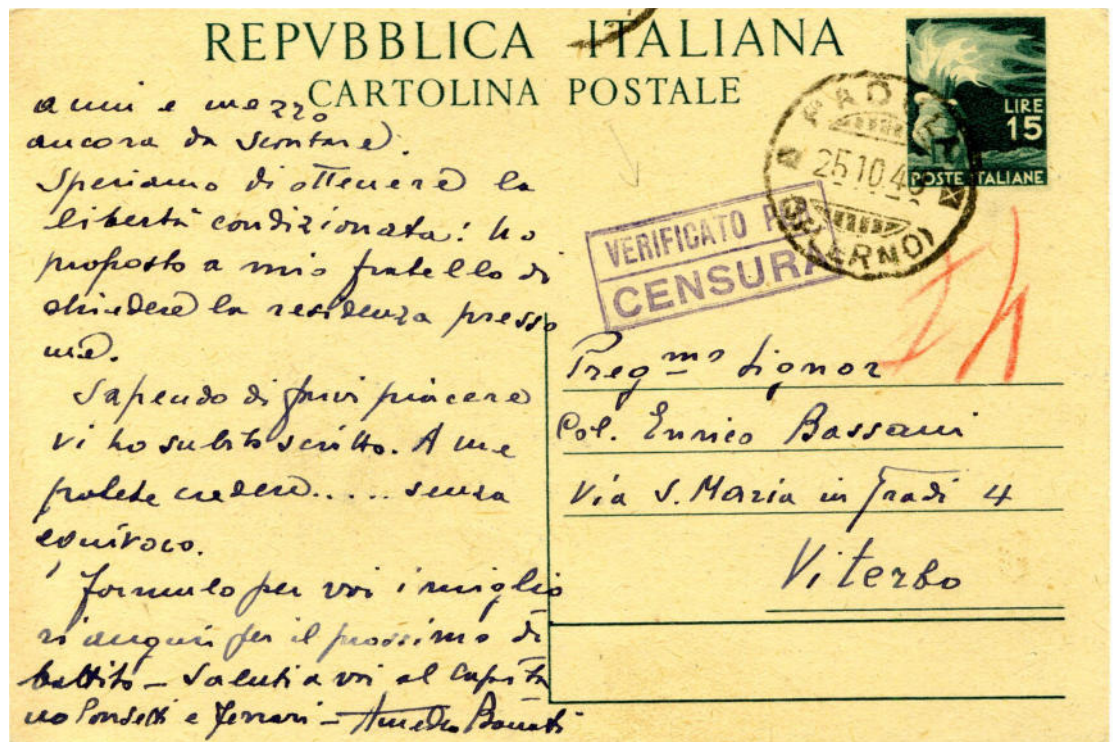 REPVBBLICA ITALIANA
CARTOLINA POSTALE
LIRE
15
POSTE ITALIANE
25.10.4
VERIFICATO PER
CENSURA
anni e mezzo
ancora da scontare.
Speriamo di ottenere la
libertà condizionata! ho
proposto a mio fratello di
chiedere la residenza presso
me.
Sapendo di farvi piacere
vi ho subito scritto. A me
potete credere..... senza
equivoco.
formulo per voi i miglio
ri auguri per il prossimo di
battito - Saluti a voi al Capita
no e Ferrari - Amedeo
Preg.mo Signor
Col. Enrico Bassani
Via S. Maria in Gradi 4
Viterbo